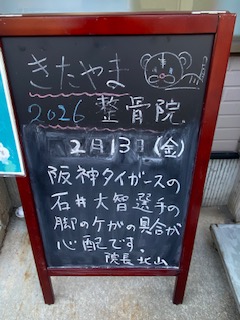 きたやま
2026 整骨院
2月13日(金)
阪神タイガースの
石井大智選手の
脚のケガの具合が
心配です。
院長 北山